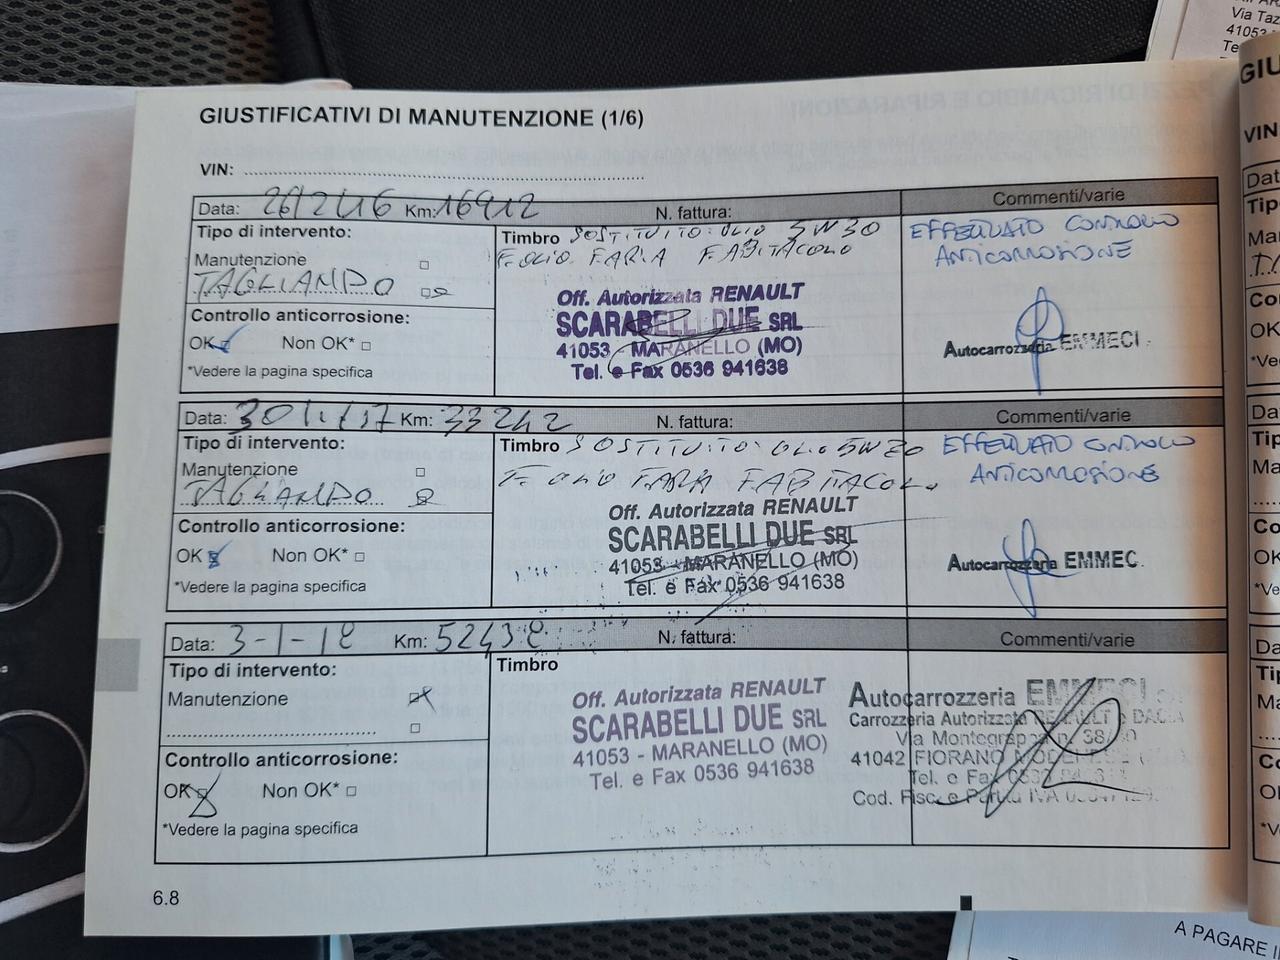 Via Taz
41053
Te
GIUSTIFICATIVI DI MANUTENZIONE (1/6)
VIN:
Data: 26/2/16 Km: 16912 N. fattura: Commenti/varie
Tipo di intervento:
Manutenzione
TAGLIANDO
Controllo anticorrosione:
OK Non OK*
*Vedere la pagina specifica
Timbro SOSTITUITO: OLIO 5W30
F. OLIO F. ARIA F. ABITACOLO
Off. Autorizzata RENAULT
SCARABELLI DUE SRL
41053 - MARANELLO (MO)
Tel. e Fax 0536 941638
EFFETTUATO CONTROLLO
ANTICORROSIONE
Autocarrozzeria EMMECI
Data: 30/1/17 Km: 33242 N. fattura: Commenti/varie
Tipo di intervento:
Manutenzione
TAGLIANDO
Controllo anticorrosione:
OK Non OK*
*Vedere la pagina specifica
Timbro SOSTITUITO: OLIO 5W30
F. OLIO F. ARIA F. ABITACOLO
Off. Autorizzata RENAULT
SCARABELLI DUE SRL
41053 - MARANELLO (MO)
Tel. e Fax 0536 941638
EFFETTUATO CONTROLLO
ANTICORROSIONE
Autocarrozzeria EMMEC
Data: 3-1-18 Km: 52438 N. fattura: Commenti/varie
Tipo di intervento:
Manutenzione
Controllo anticorrosione:
OK Non OK*
*Vedere la pagina specifica
Timbro
Off. Autorizzata RENAULT
SCARABELLI DUE SRL
41053 - MARANELLO (MO)
Tel. e Fax 0536 941638
Autocarrozzeria EMMECI
Carrozzeria Autorizzata RENAULT e DACIA
Via Montegrappa n. 38/40
41042 FIORANO MODENESE
Tel. e Fax
Cod. Fisc. e Partita IVA
6.8
GIU
VIN
Dat
Tip
Ma
Co
OK
*Ve
Da
Tip
Ma
Co
OK
*Ve
Da
Tip
Ma
Co
*V
A PAGARE I